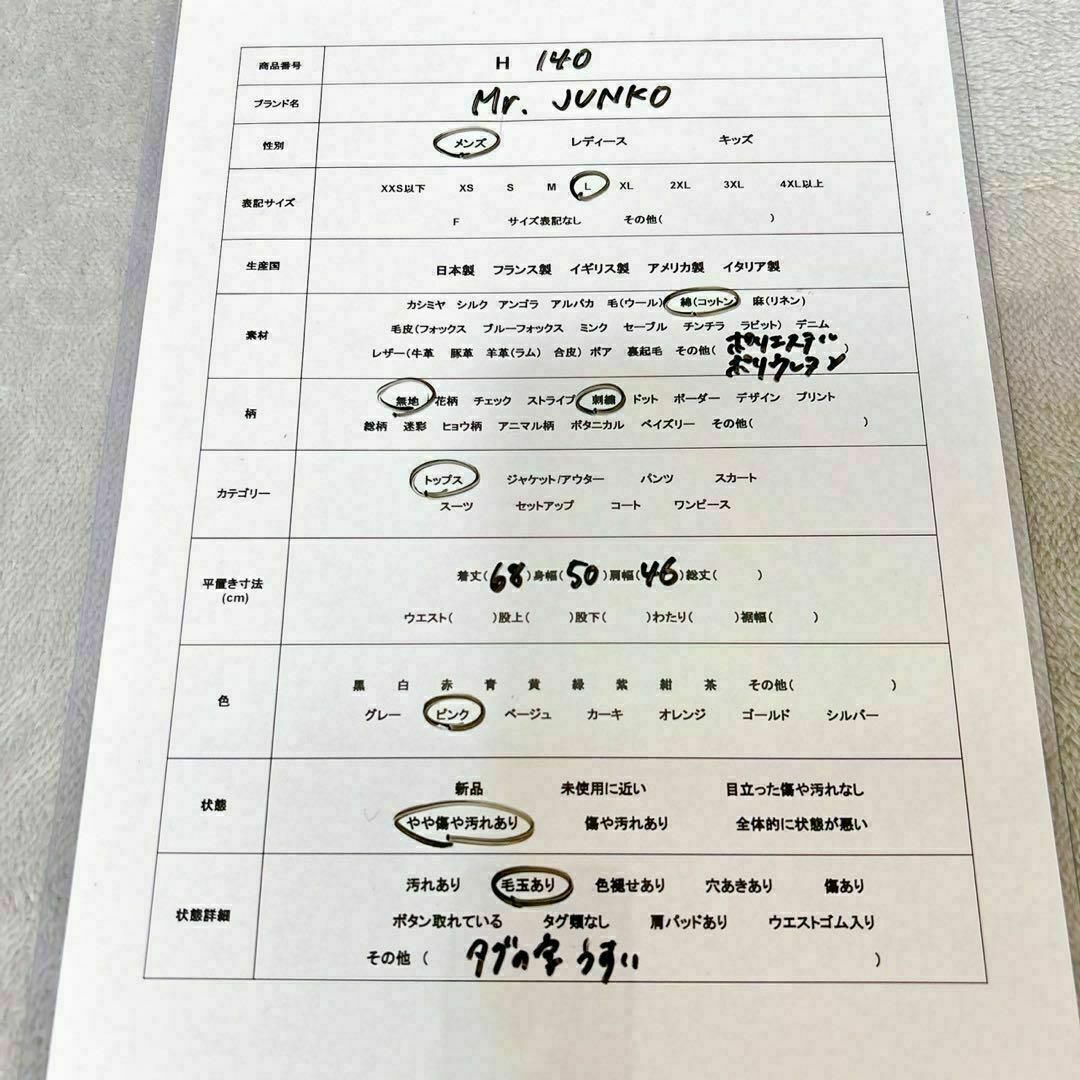 商品番号 H 140
ブランド名 Mr. JUNKO
性別 メンズ レディース キッズ
表記サイズ
XXS以下 XS S M L XL 2XL 3XL 4XL以上
F サイズ表記なし その他( )
生産国 日本製 フランス製 イギリス製 アメリカ製 イタリア製
素材
カシミヤ シルク アンゴラ アルパカ 毛(ウール) 綿(コットン) 麻(リネン)
毛皮(フォックス ブルーフォックス ミンク セーブル チンチラ ラビット) デニム
レザー(牛革 豚革 羊革(ラム) 合皮) ボア 裏起毛 その他( ポリエステル )
ポリウレタン
柄
無地 花柄 チェック ストライプ 刺繍 ドット ボーダー デザイン プリント
総柄 迷彩 ヒョウ柄 アニマル柄 ボタニカル ペイズリー その他( )
カテゴリー
トップス ジャケット/アウター パンツ スカート
スーツ セットアップ コート ワンピース
平置き寸法
(cm)
着丈(68)身幅(50)肩幅(46)総丈( )
ウエスト( )股上( )股下( )わたり( )裾幅( )
色
黒 白 赤 青 黄 緑 紫 紺 茶 その他( )
グレー ピンク ベージュ カーキ オレンジ ゴールド シルバー
状態
新品 未使用に近い 目立った傷や汚れなし
やや傷や汚れあり 傷や汚れあり 全体的に状態が悪い
状態詳細
汚れあり 毛玉あり 色褪せあり 穴あきあり 傷あり
ボタン取れている タグ類なし 肩パッドあり ウエストゴム入り
その他 ( タグの字 うすい )